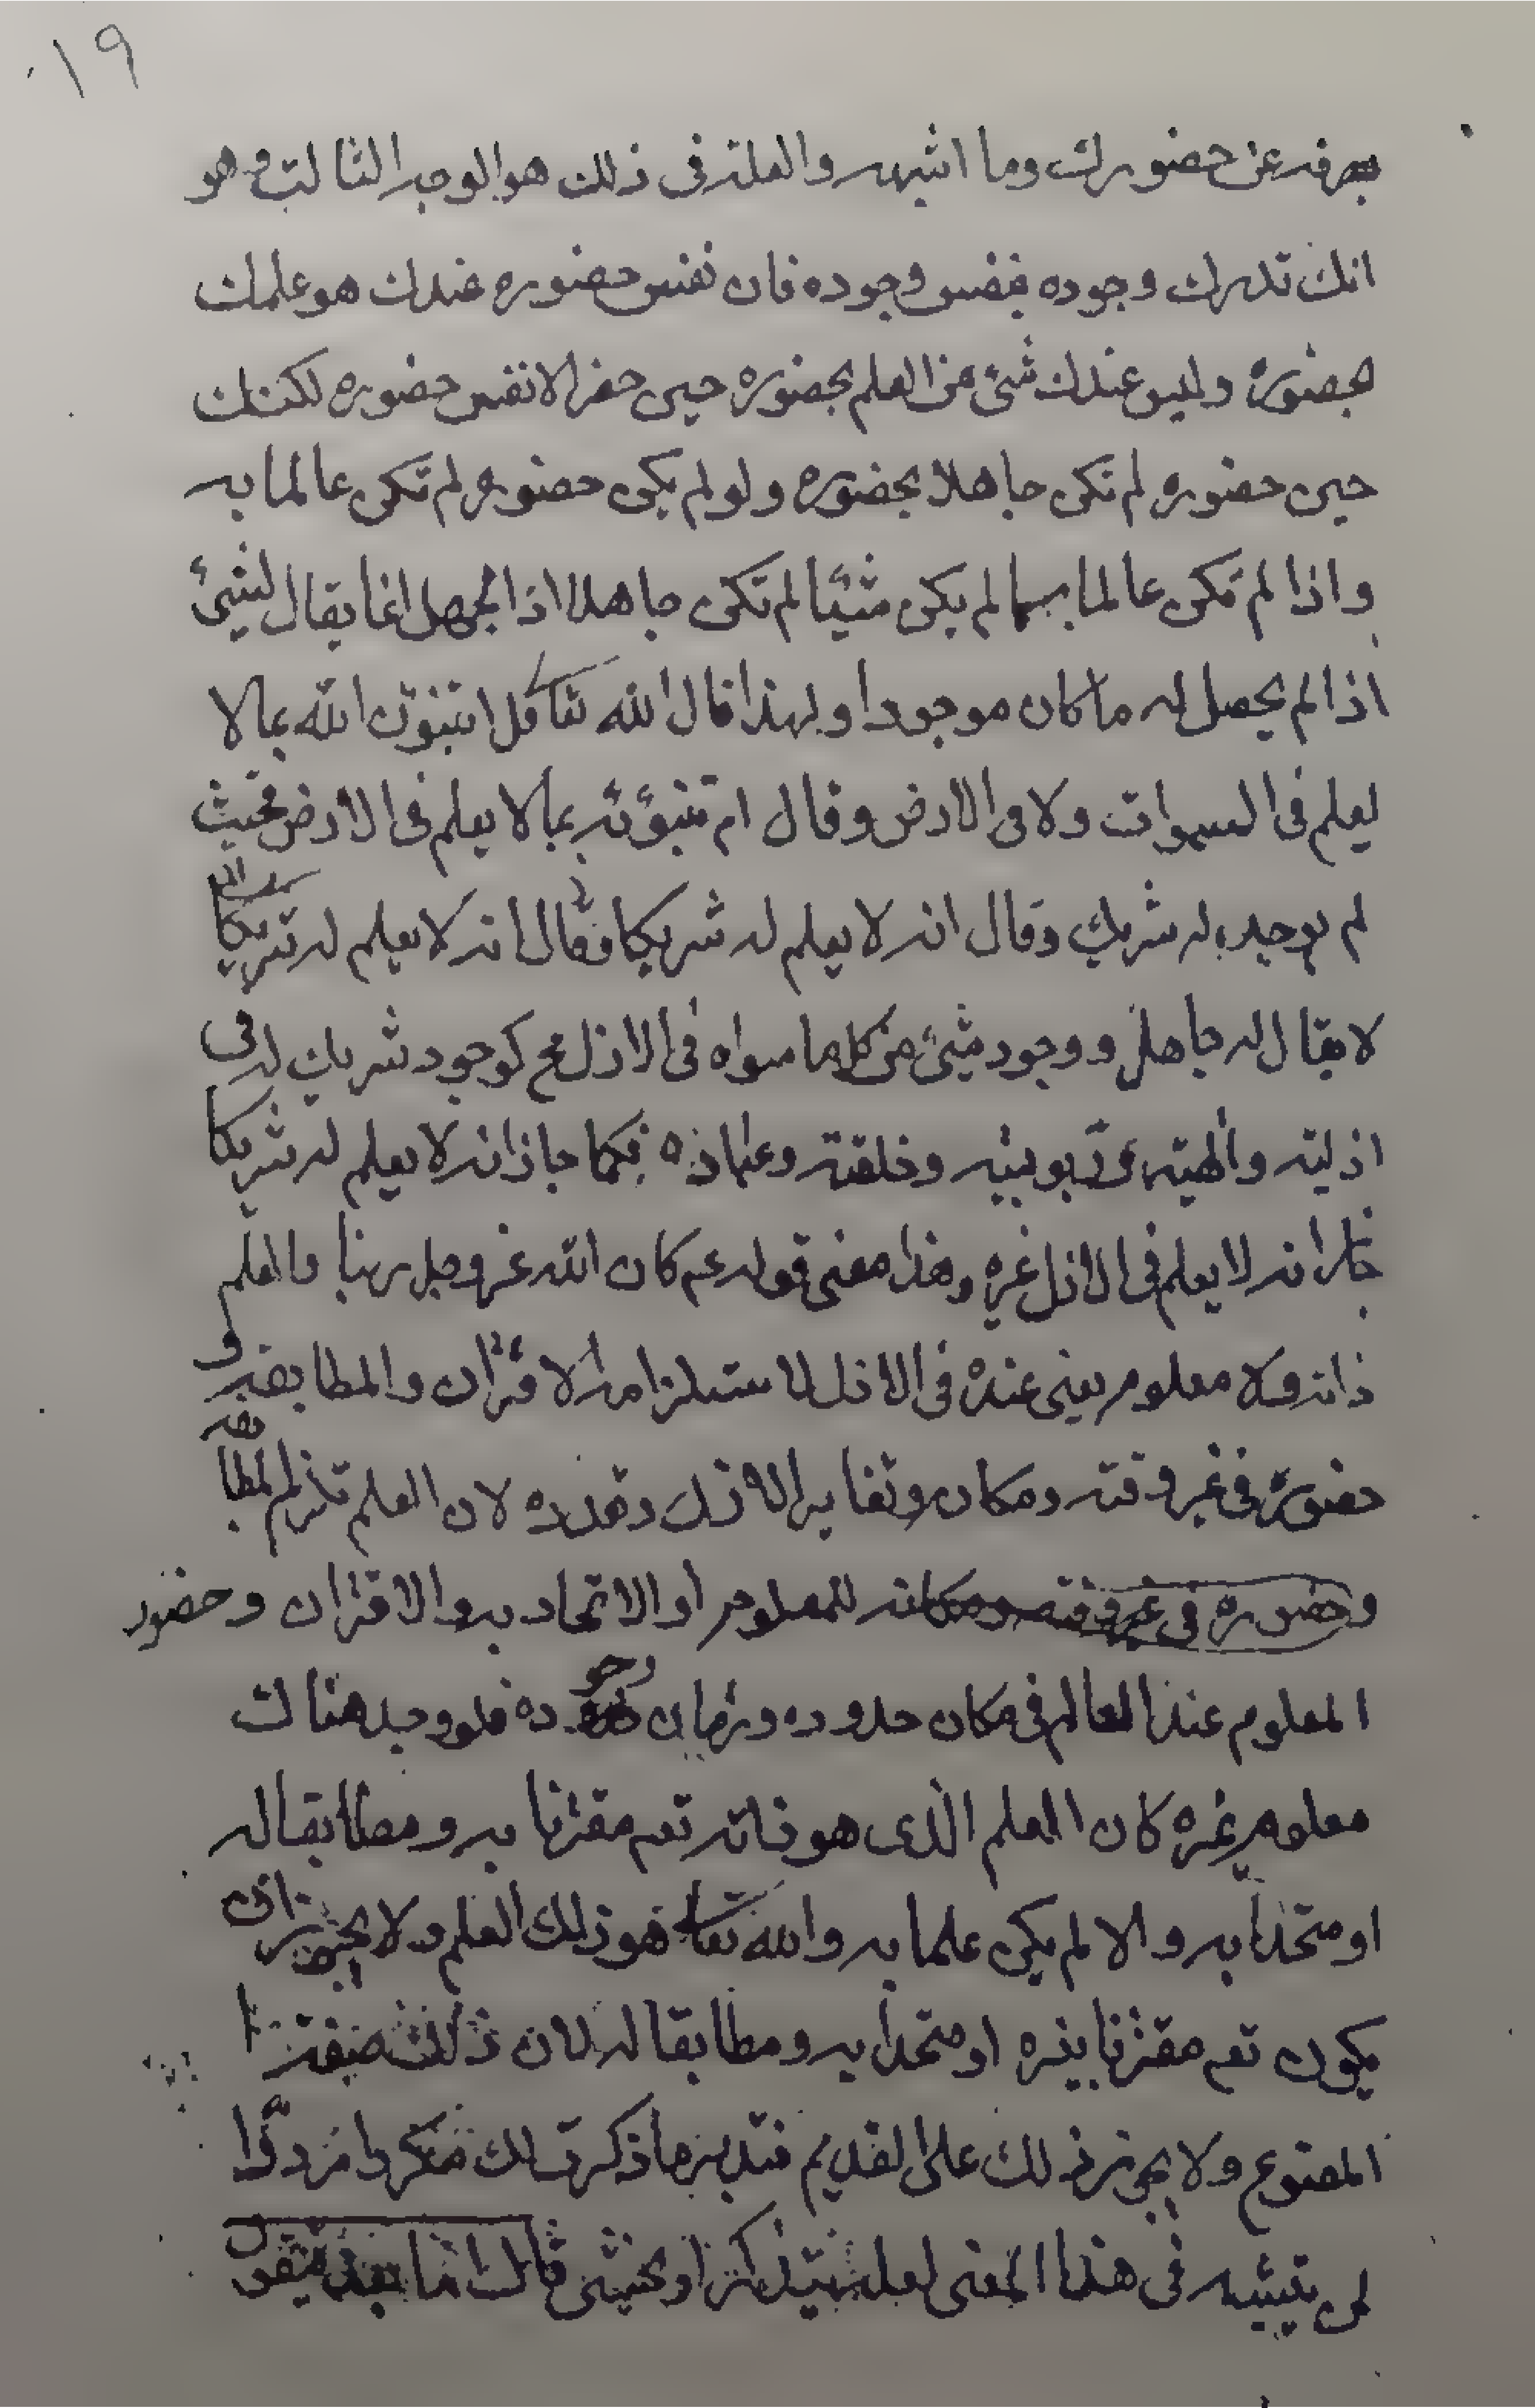 ١٩
بصرفه عن حضورك وما اشبهه والعلة فى ذلك هو الوجه الثالث وهو
انك تدرك وجوده بنفس وجوده فان نفس حضوره عندك هو علمك
بحضوره وليس عندك شئ من العلم بحضوره حين حضر الا نفس حضوره لكنك
حين حضوره لم تكن جاهلا بحضوره ولو لم يكن حضوره لم تكن عالما به
واذا لم تكن عالما بما لم يكن شيئا لم تكن جاهلا اذ الجهل انما يقال لشئ
اذا لم يحصل له ما كان موجودا ولهذا قال الله تعا قل اتنبؤن الله بما لا
يعلم فى السموات ولا فى الارض وقال ام تنبؤنه بما لا يعلم فى الارض فحيث
لم يوجد له شريك وقال انه لا يعلم له شريكا فقال انه لا يعلم له شريكا
لا يقال له جاهل ووجود شئ من كل ما سواه فى الازل مح كوجود شريك له فى
ازليته وألهيته وربوبيته وخلقته وعباده فكما جاز انه لا يعلم له شريكا
جاز انه لا يعلم فى الازل غيره وهذا معنى قوله عم كان الله عز وجل ربنا والعلم
ذاته ولا معلوم يعنى عنده فى الازل لاستلزامه الاقتران والمطابقة و
حضوره فى غير وقته ومكانه وتغاير الازل وتعدده لان العلم تلزم المطابقة
وحضوره فى غير وقته ومكانه للمعلوم او الاتحاد به والاقتران وحضور
المعلوم عند العالم فى مكان حدوده وزمان وجوده فلو وجد هناك
معلوم غيره كان العلم الذى هو ذاته تعم مقترنا به ومطابقا له
او متحدا به والا لم يكن علما به والله تعا هو ذلك العلم ولا يجوز ان
يكون تعم مقترنا بغيره او متحدا به ومطابقا له لان ذلك صفة
المصنوع ولا يجوز ذلك على القديم فتدبر ما ذكرت لك مكررا مرددا
لمن يتنبه فى هذا المعنى لعله يتذكر او يخشى قال